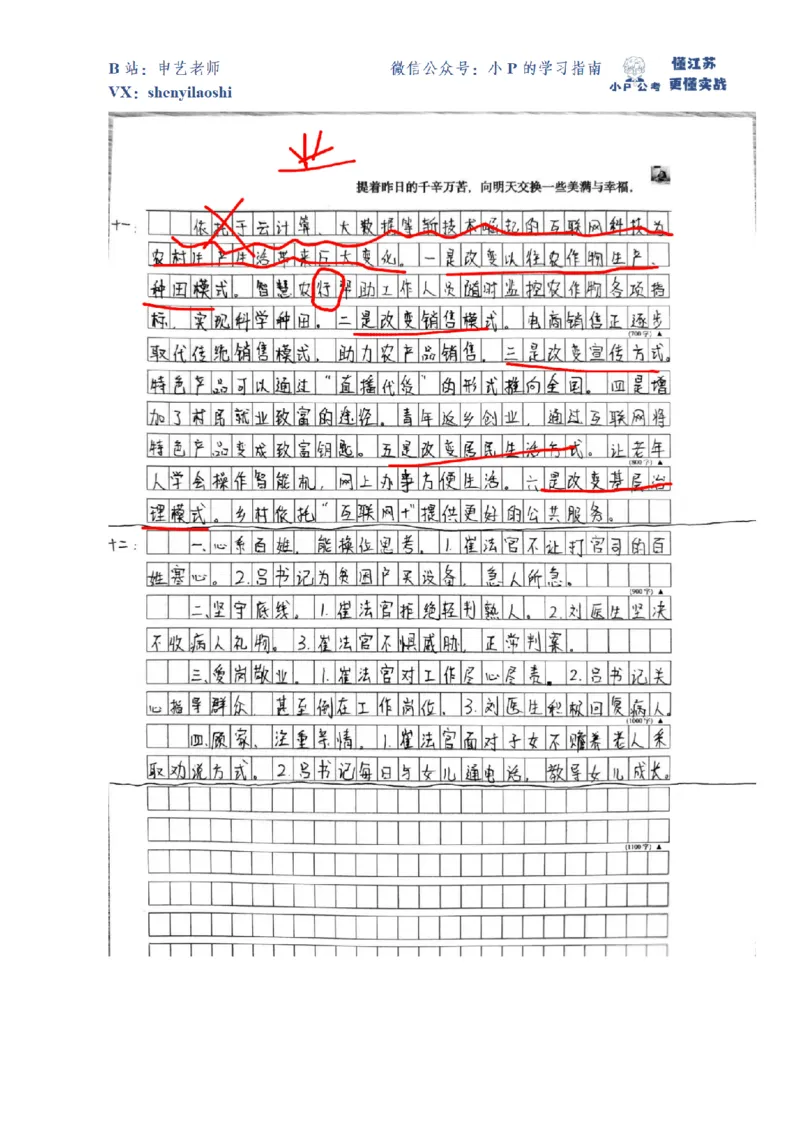 B 站：申艺老师
微信公众号：小 P 的学习指南
VX：shenyilaoshi
小P公考
懂江苏
更懂实战
业
提着昨日的千辛万苦，向明天交换一些美满与幸福。
十一：
依托于云计算、大数据等新技术崛起的互联网科技为
农村生产生活带来巨大变化。一是改变以往农作物生产、
种田模式。智慧农行帮助工作人员随时监控农作物各项指
标，实现科学种田。二是改变销售模式。电商销售正逐步
(700字)▲
取代传统销售模式，助力农产品销售。三是改变宣传方式。
特色产品可以通过“直播代货”的形式推向全国。四是增
加了村民就业致富的途径。青年返乡创业，通过互联网将
特色产品变成致富钥匙。五是改变居民生活方式。让老年
(800字)▲
人学会操作智能机，网上办事方便生活。六是改变基层治
理模式。乡村依托“互联网+”提供更好的公共服务。
十二：
一、心系百姓，能换位思考。1.崔法官不让打官司的百
姓寒心。2.吕书记为贫困户买设备，急人所急。
(900字)▲
二、坚守底线。1.崔法官拒绝轻判熟人。2.刘医生坚决
不收病人礼物。3.崔法官不惧威胁，正常判案。
三、爱岗敬业。1.崔法官对工作尽心尽责。2.吕书记关
心指导群众，甚至倒在工作岗位。3.刘医生积极回复病人。
(1000字)▲
四、顾家、注重亲情。1.崔法官面对子女不赡养老人采
取劝说方式。2.吕书记每日与女儿通电话，教导女儿成长。
(1100字)▲